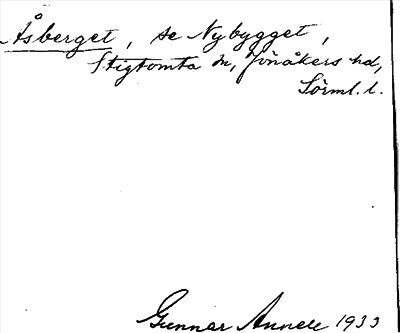 Åsberget, se Nybygget,
Stigtomta sn, Jönåkers hd,
Sörml. l.
Gunnar Annell 1933